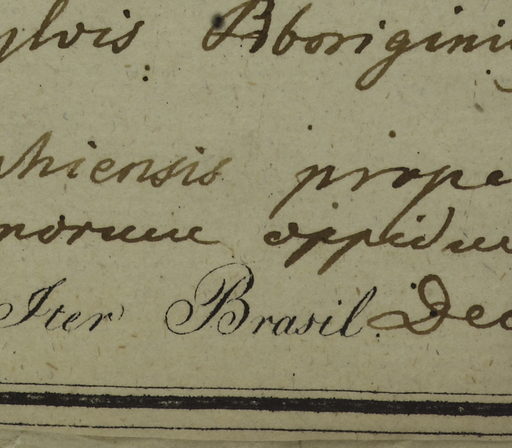 ylvis Aborigini
ahiensis prope
norum oppidu
Iter Brasil. Dec